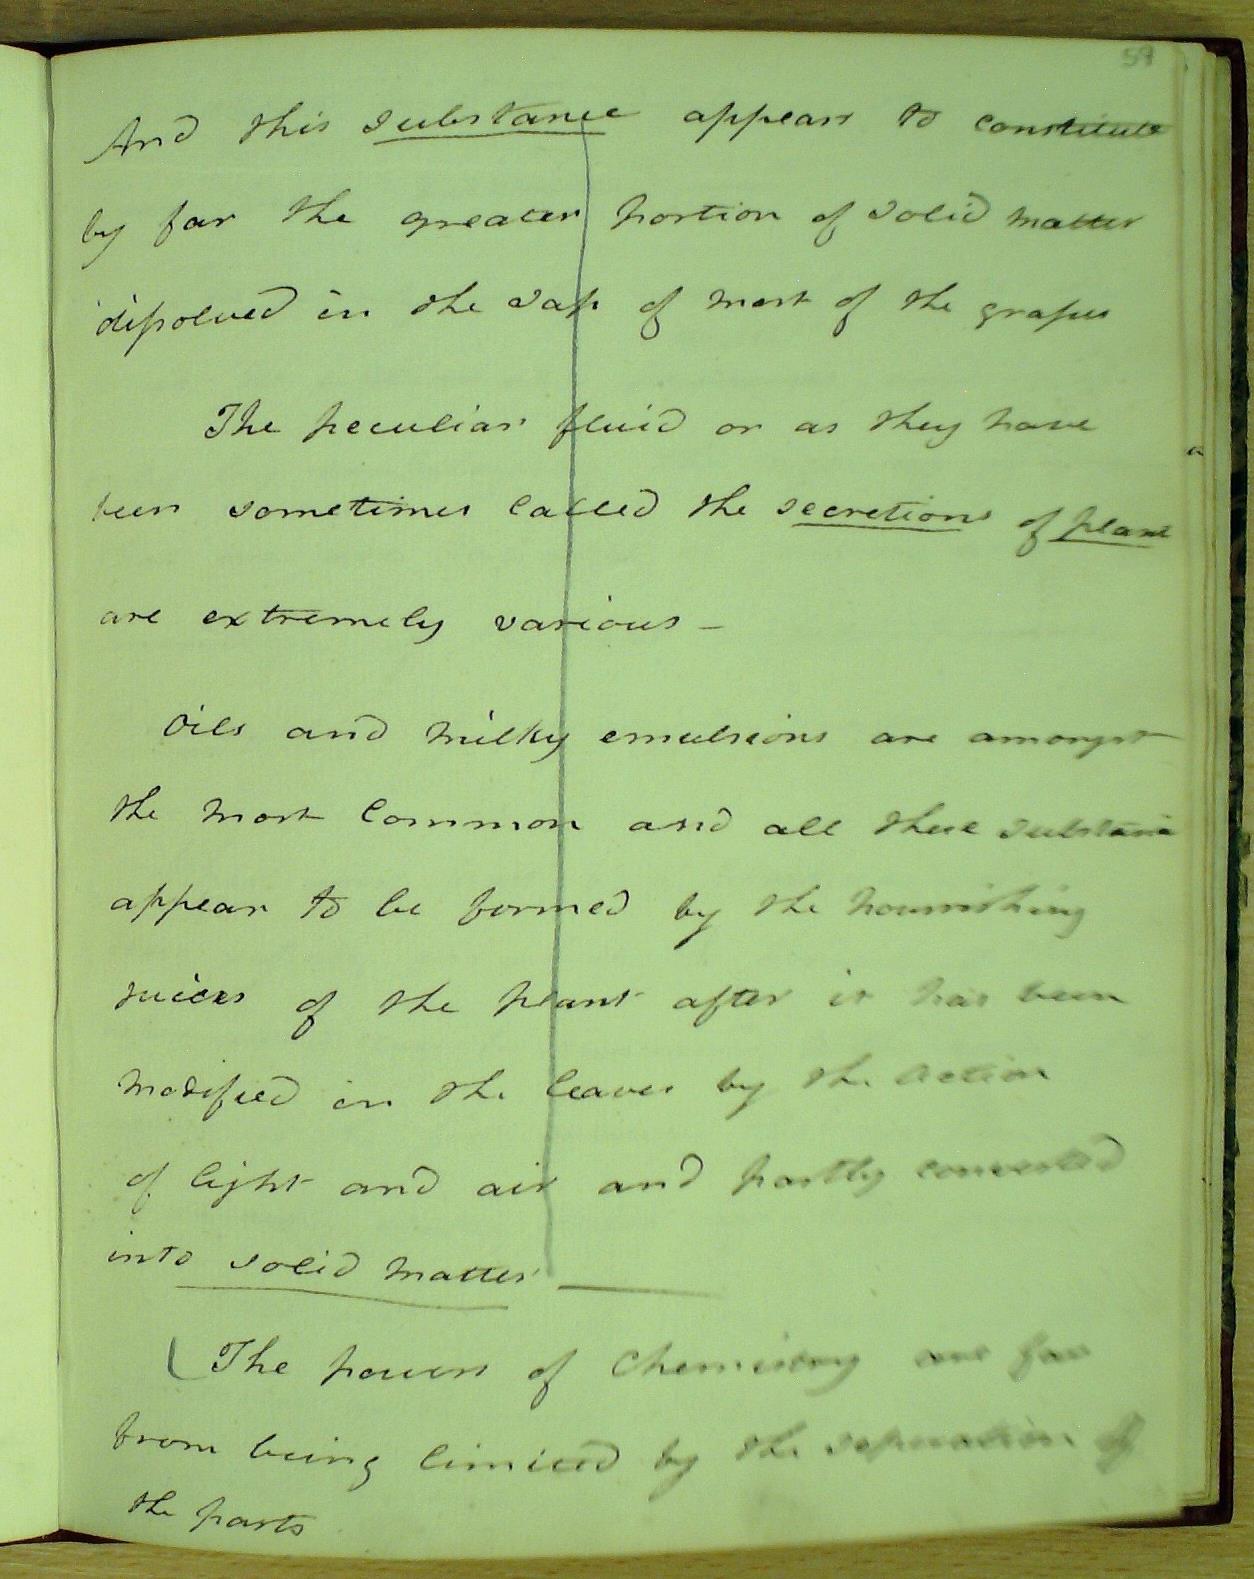 59
And this substance appears to constitute
by far the greater portion of solid matter
dissolved in the sap of most of the grapes
The peculiar fluid or as they have
been sometimes called the secretions of plant
are extremely various -
Oils and milky emulsions are amongst
the most common and all these substance
appear to be formed by the nourishing
juices of the plant after it has been
modified in the leaves by the action
of light and air and partly converted
into solid matter
The powers of Chemistry are far
from being limited by the separation of
the parts